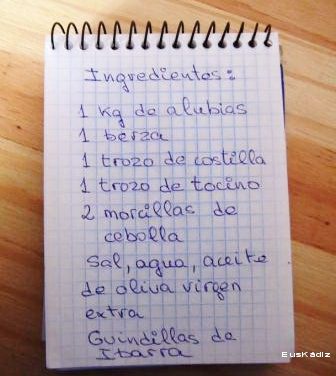 Ingredientes:
1 Kg de alubias
1 berza
1 trozo de costilla
1 trozo de tocino
2 morcillas de
cebolla
Sal, agua, aceite
de oliva virgen
extra
Guindillas de
Ibarra
EusKadiz